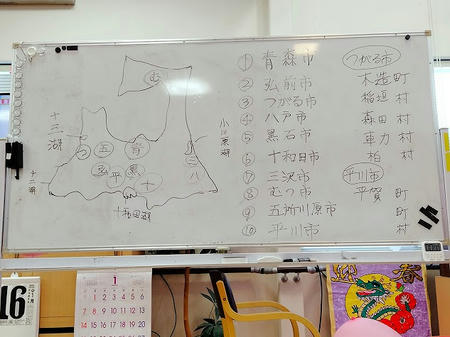 ① 青森市
② 弘前市
③ つがる市
④ 八戸市
⑤ 黒石市
⑥ 十和田市
⑦ 三沢市
⑧ むつ市
⑨ 五所川原市
⑩ 平川市
つがる市
木造町
稲垣 村
森田 村
車力 村
柏 村
平川市
平賀 町
町
村
む
つ 五 青
弘 平 黒
十
三
八
十三湖
小川原湖
十二湖
十和田湖
16
1
迎春